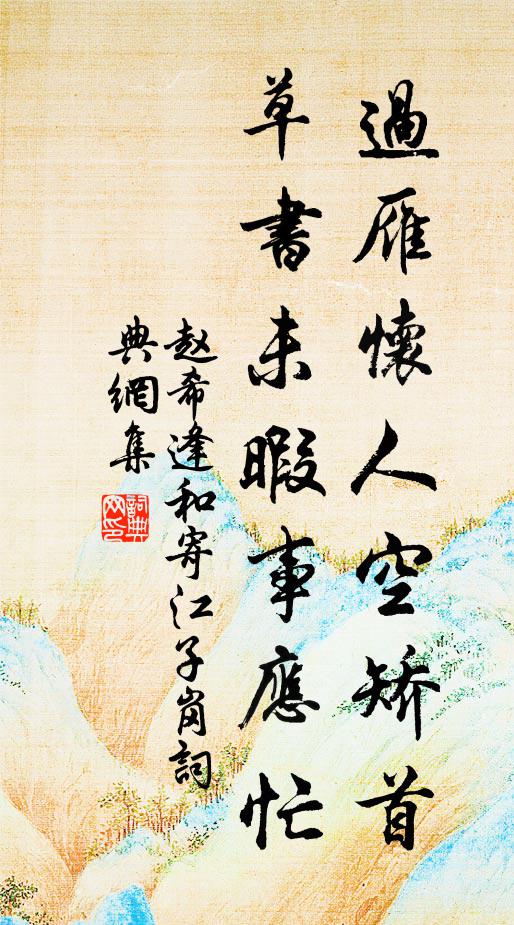 過雁懷人空矯首
草書未暇事應忙
赵希逢和寄江子岗詞
典網集
詞典
网印